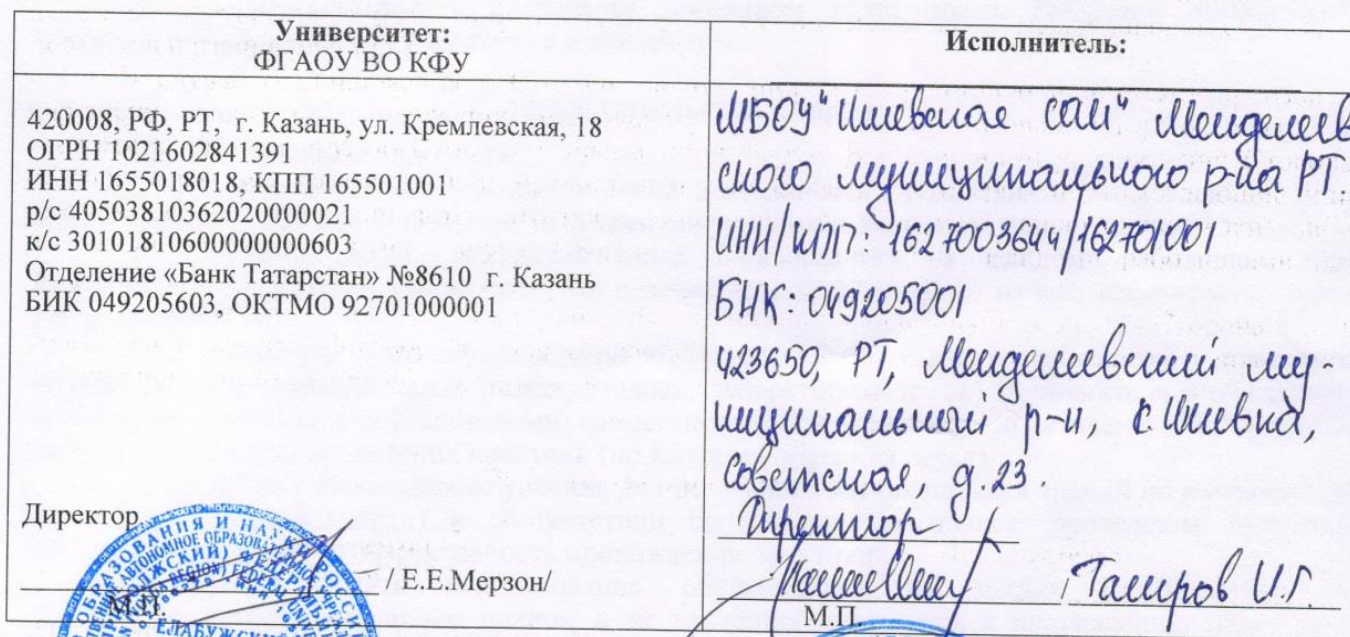 Университет:
ФГАОУ ВО КФУ
420008, РФ, РТ, г. Казань, ул. Кремлевская, 18
ОГРН 1021602841391
ИНН 1655018018, КПП 165501001
р/с 40503810362020000021
к/с 30101810600000000603
Отделение «Банк Татарстан» №8610 г. Казань
БИК 049205603, ОКТМО 92701000001
Директор
/ Е.Е.Мерзон/
М.П.
Исполнитель:
МБОУ "Ижевская СОШ" Менделеев
ского муниципального р-на РТ
ИНН/КПП: 1627003644/162701001
БИК: 049205001
423650, РТ, Менделеевский му-
ниципальный р-н, с Ижевка,
Советская, д.23.
Директор
Тагиров И.Г.
М.П.